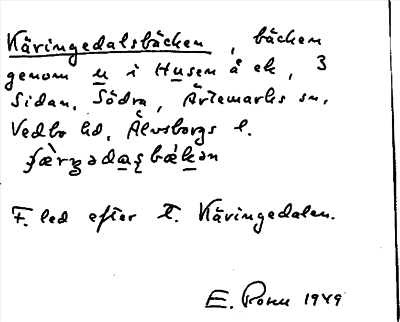 Käringedalsbäcken, bäcken
genom u i Husen å ek, 3
Sidan, Södra, Ärtemarks sn,
Vedbo hd, Älvsborgs l.
F. led efter t. Käringedalen.
E. 1949